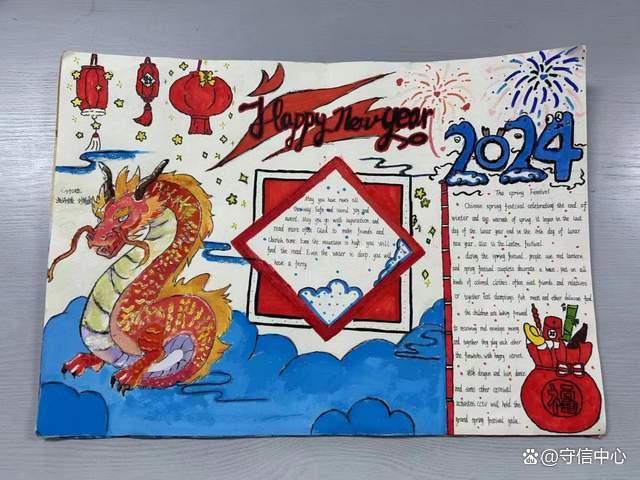 Happy New year
2024
May you have never all
thorway, safe and sound joy and
sweet. May you go with aspiration and
read more often. Glad to make friends and
cherish time. Even the mountain is high, you will
find the road. Even the water is deep, you will
have a ferry.
The Spring Festival
Chinese spring festival celebrating the end of
winter and the warmth of spring. it began in the last
day of the lunar year end in the 15th day of lunar
new year, also is the Lantern festival.
during the spring festival, people use red lanterns
and spring festival couplets decorate a house, put on all
kinds of colored clothes, often visit friends and relatives
or together eat dumplings, fish, meat and other delicious food.
the children are looking forward
to receiving red envelope money
and together they play each other
the fireworks, with happy
With dragon and lion dance
and some other carnival
activities CCTV will hold the
grand spring festival gala.
福
@守信中心